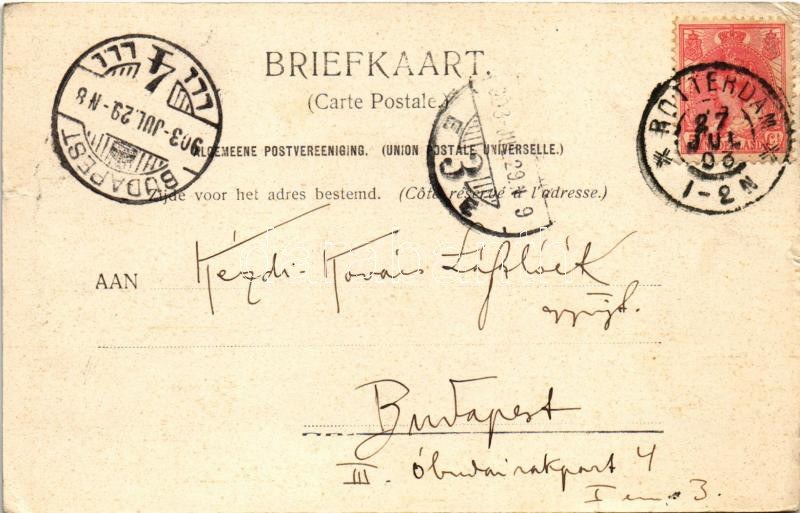 BRIEFKAART.
(Carte Postale.)
ALGEMEENE POSTVEREENIGING. (UNION POSTALE UNIVERSELLE.)
Zijde voor het adres bestemd. (Côté réservé à l'adresse.)
AAN Kézdi-Kovács Lászlóék
Budapest
III. Óbudai rakpart 4
I em. 3.
BUDAPEST
903-JUL.29-N8
ROTTERDAM
27
JUL
1-2N